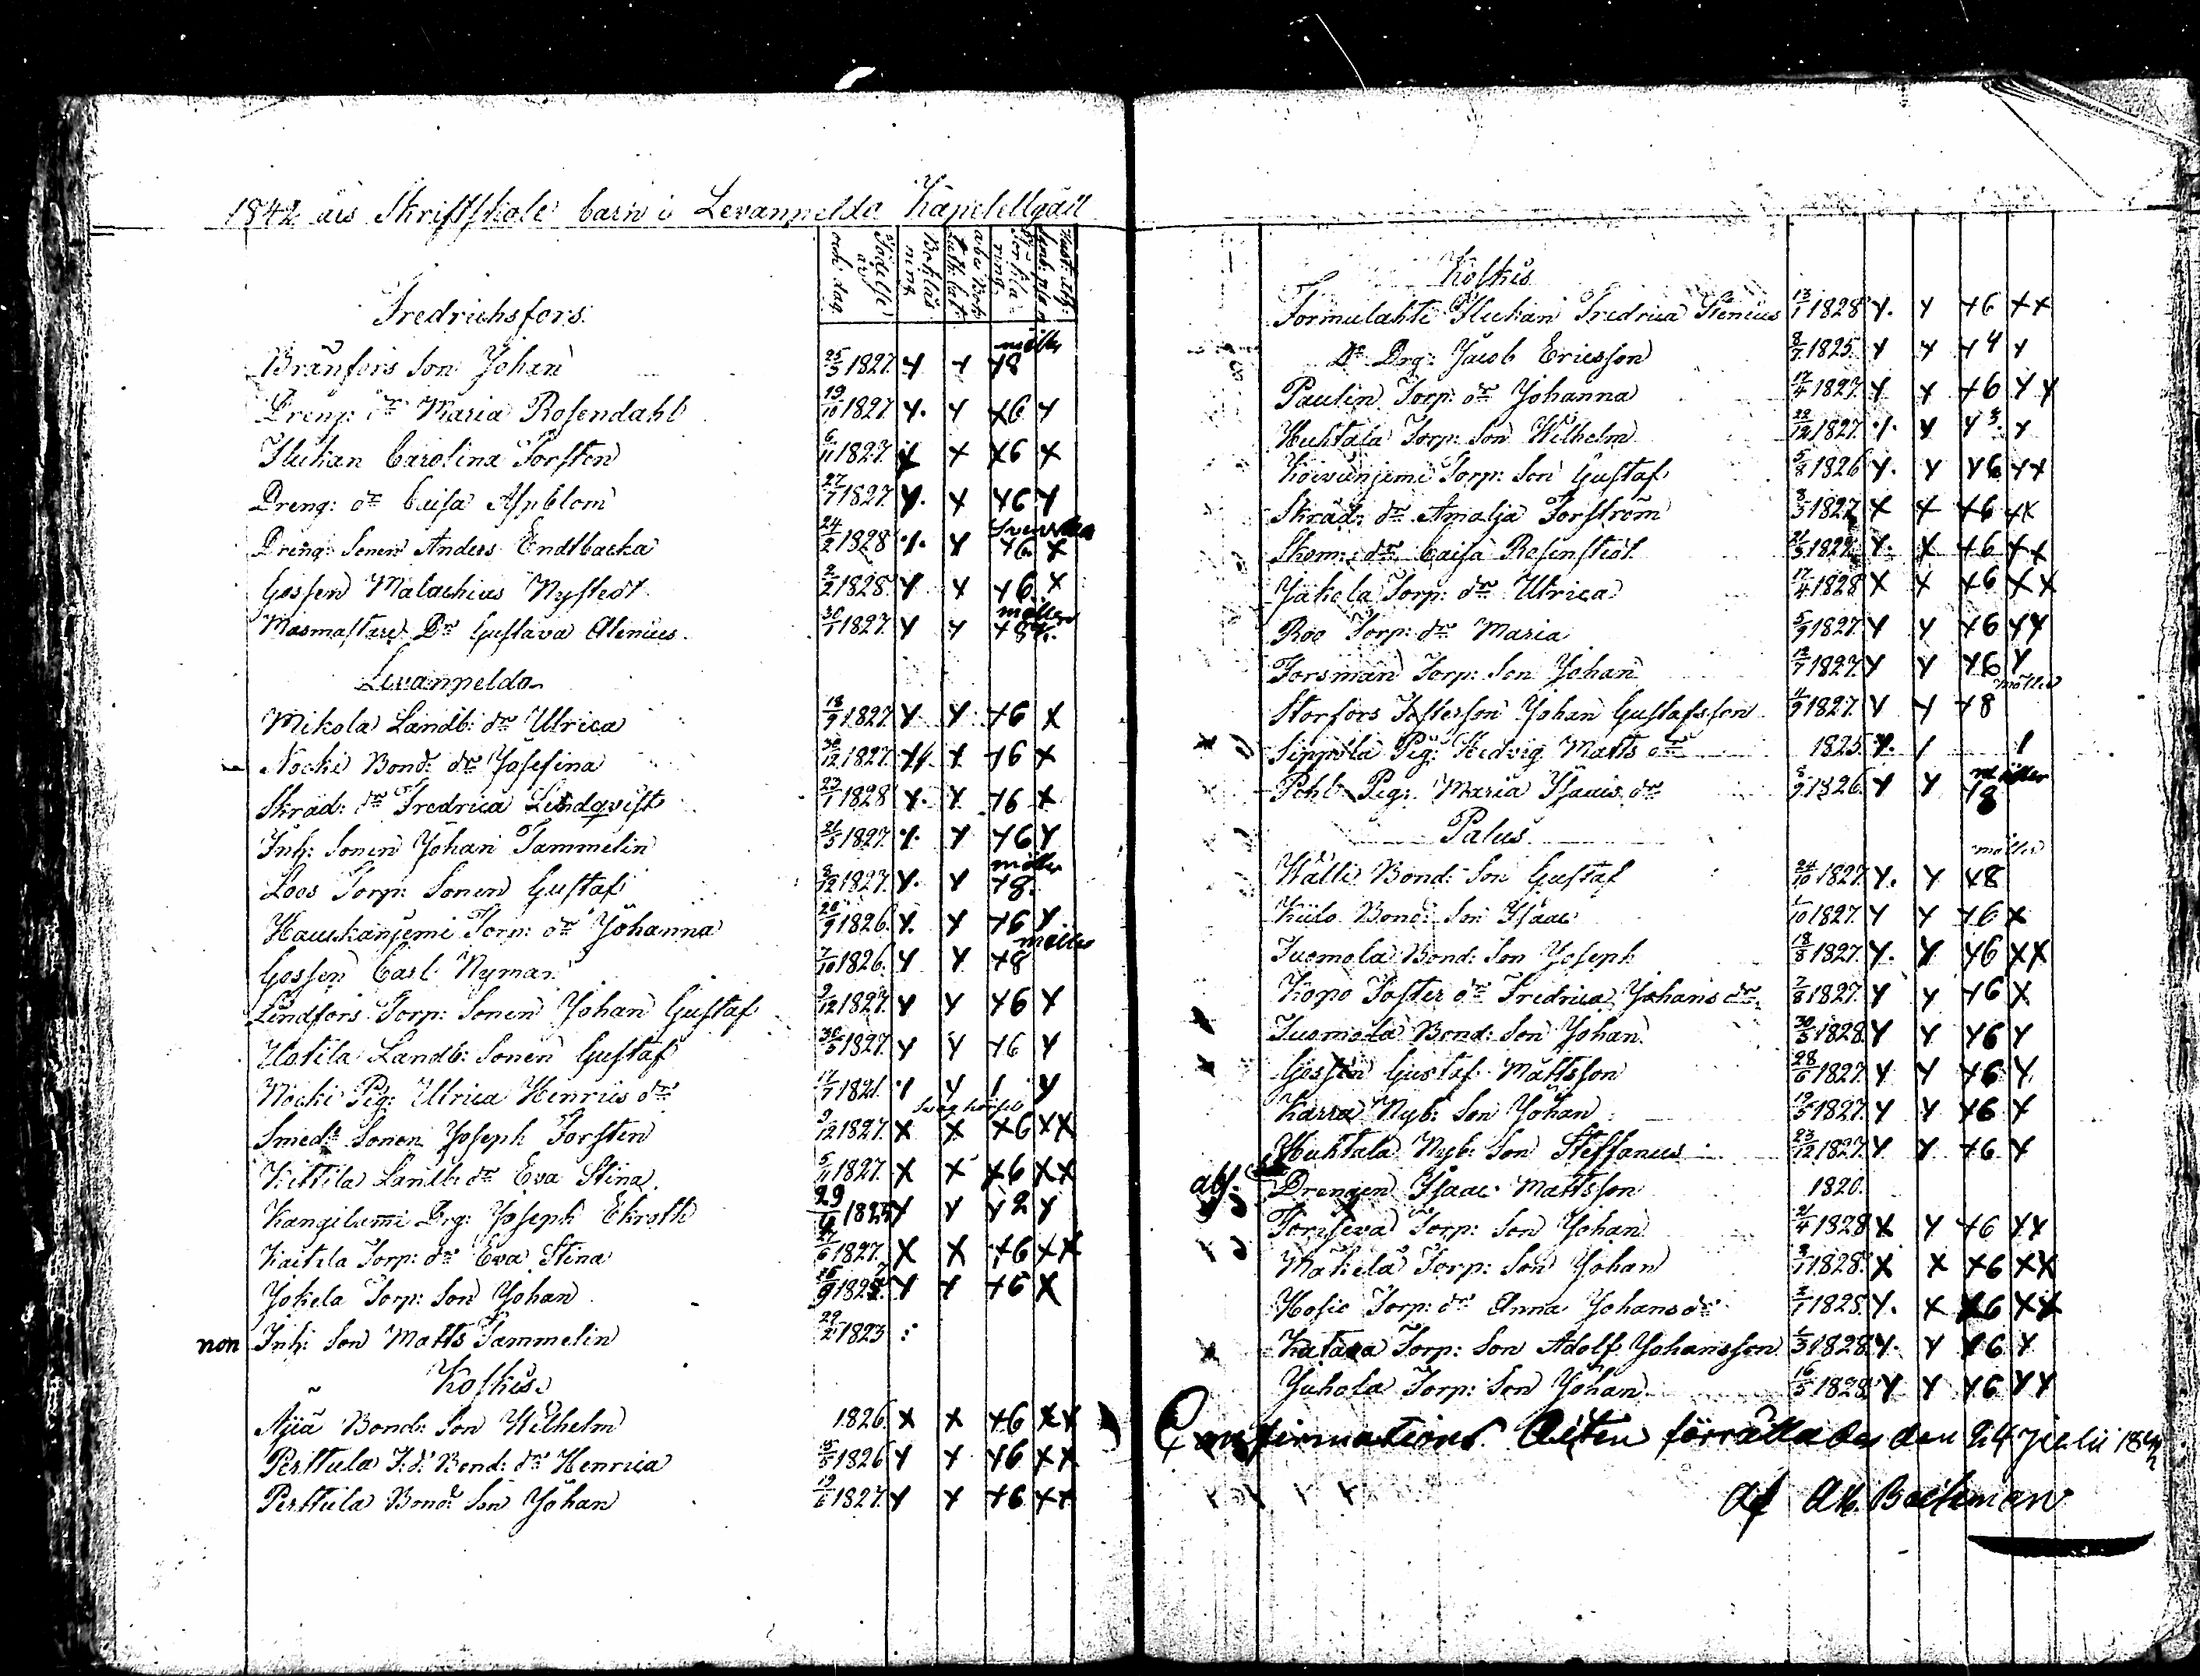 1842 års Skriftskole barn i Levanpelda Kapellgäll
Födelse år och dag
Bokläsning
Fredrichsfors.
Bränfors Son Johan 25/3 1827. x x x8 möller
Dreng: dr Maria Rosendahl 19/10 1827 x. x x6 x
Ilukan Carolina Forsten 6/11 1827. x x x6 x
Dreng: dr Caisa Aspblom 27/7 1827 x. x x6 x
Dreng: Sonen Anders Endtbacka 24/2 1828 x x x6 x Svenska
Gossen Malachias Nystedt 2/2 1828. x x x6 x
Masmästare Dr Gustava Alenius. 30/1 1827. x x x8 möller
Levanpelda
Mikola Landb: dr Ulrica 18/9 1827 x x x6 x
Nocki Bond: dr Josefina 30/12 1827. x x x6 x
Skräd: dr Fredrica Lindqvist 23/1 1828 x. x x6 x
Inh: Sonen Johan Tammelin 21/3 1827. x. x x6 x
Loos Torp: Sonen Gustaf 8/12 1827. x. x x8. möller
Hauskanjemi Torp: dr Johanna 28/9 1826. x. x x6 x
Gossen Carl Nyman 7/10 1826. x x x8 möller
Lindfors Torp: Sonen Johan Gustaf 9/12 1827. x x x6 x
Uotila Landb: Sonen Gustaf 30/5 1827. x x x6 x
Nocki Pig: Ulrica Henrics dr 17/7 1821. x x 1 x
Smeds Sonen Joseph Forsten 9/12 1827. x x x6 xx Svag hörsel
Kittila Landb: dr Eva Stina. 5/11 1827. x x x6 xx
Kangilammi Drg: Joseph Ekroth 29 1825 x x x2 x
Kaitila Torp: dr Eva Stina 27/6 1827. x x x6 xx
Jokela Torp: Son Johan 16/9 1827. x x x6 x
non Inh: Son Matts Tammelin 29/2 1823 :
Koskis.
Äjiä Bond: Son Wilhelm 1826 x x x6 xx
Perttula F.d. Bond: dr Henrica 15/5 1826 x x x6 xx
Perttula Bond: Son Johan 19/6 1827. x x x6 xx
Koskis
Tormulahti Ilukan Fredrica Stenius 13/1 1828 x. x x6 xx
Do Drg: Jacob Ericsson 8/7 1825. x x x4 x
Paulin Torp: dr Johanna 17/4 1827. x x x6 xx
Huhtala Torp: Son Wilhelm 22/12 1827. x x x3 x
Koivunjemi Torp: Son Gustaf 5/8 1826 x. x x6 xx
Skräd: dr Amalja Forström 8/3 1827 x x x6 xx
Skom: dr Caisa Rosenstedt 21/3 1827. x. x x6 xx
Jäkola Torp: dr Ulrica 17/4 1828 x x x6 xx
Roo Torp: dr Maria 5/9 1827. x x x6 xx
Forsman Torp: Son Johan 13/7 1827. x x x6 x
Storfors Fosterson Johan Gustafsson 4/9 1827. x x x8 möller
Sippola Pig: Hedvig Matts dr 1825. x. 1 1
Pohl Pig: Maria Isaacs dr 8/9 1826 x x x8 möller
Palus
Wälli Bond: Son Gustaf 24/10 1827. x. x x8 möller
Kiilo Bond: Son Isaac 1/10 1827. x x x6 x
Tuomola Bond: Son Joseph 18/8 1827. x. x x6 xx
Kopo Foster dr Fredrica Johans dr 7/8 1827. x x x6 x
Tuomola Bond: Son Johan 30/3 1828. x x x6 x
Gossen Gustaf Mattsson 28/6 1827. x x x6 x
Karra Nyb: Son Johan 19/5 1827. x x x6 x
Huhtala Nyb: Son Steffanus 23/12 1827. x x x6 x
abs. Drengen Isaac Mattsson 1820.
Torriseva Torp: Son Johan 21/4 1828 x x x6 xx
Mäkelä Torp: Son Johan 3/1 1828. x x x6 xx
Hosio Torp: dr Anna Johans dr 2/1 1828. x. x x6 xx
Kataja Torp: Son Adolf Johansson 1/3 1828. x. x x6 x
Juhola Torp: Son Johan 16/5 1828. x x x6 xx
Confirmations Acten förrättades den 24 Julii 1842
af Ak. Backman